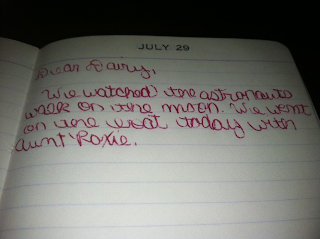 JULY 29
Dear Dairy,
We watched the astronauts
walk on the moon. We went
on the boat today with
aunt Roxie.